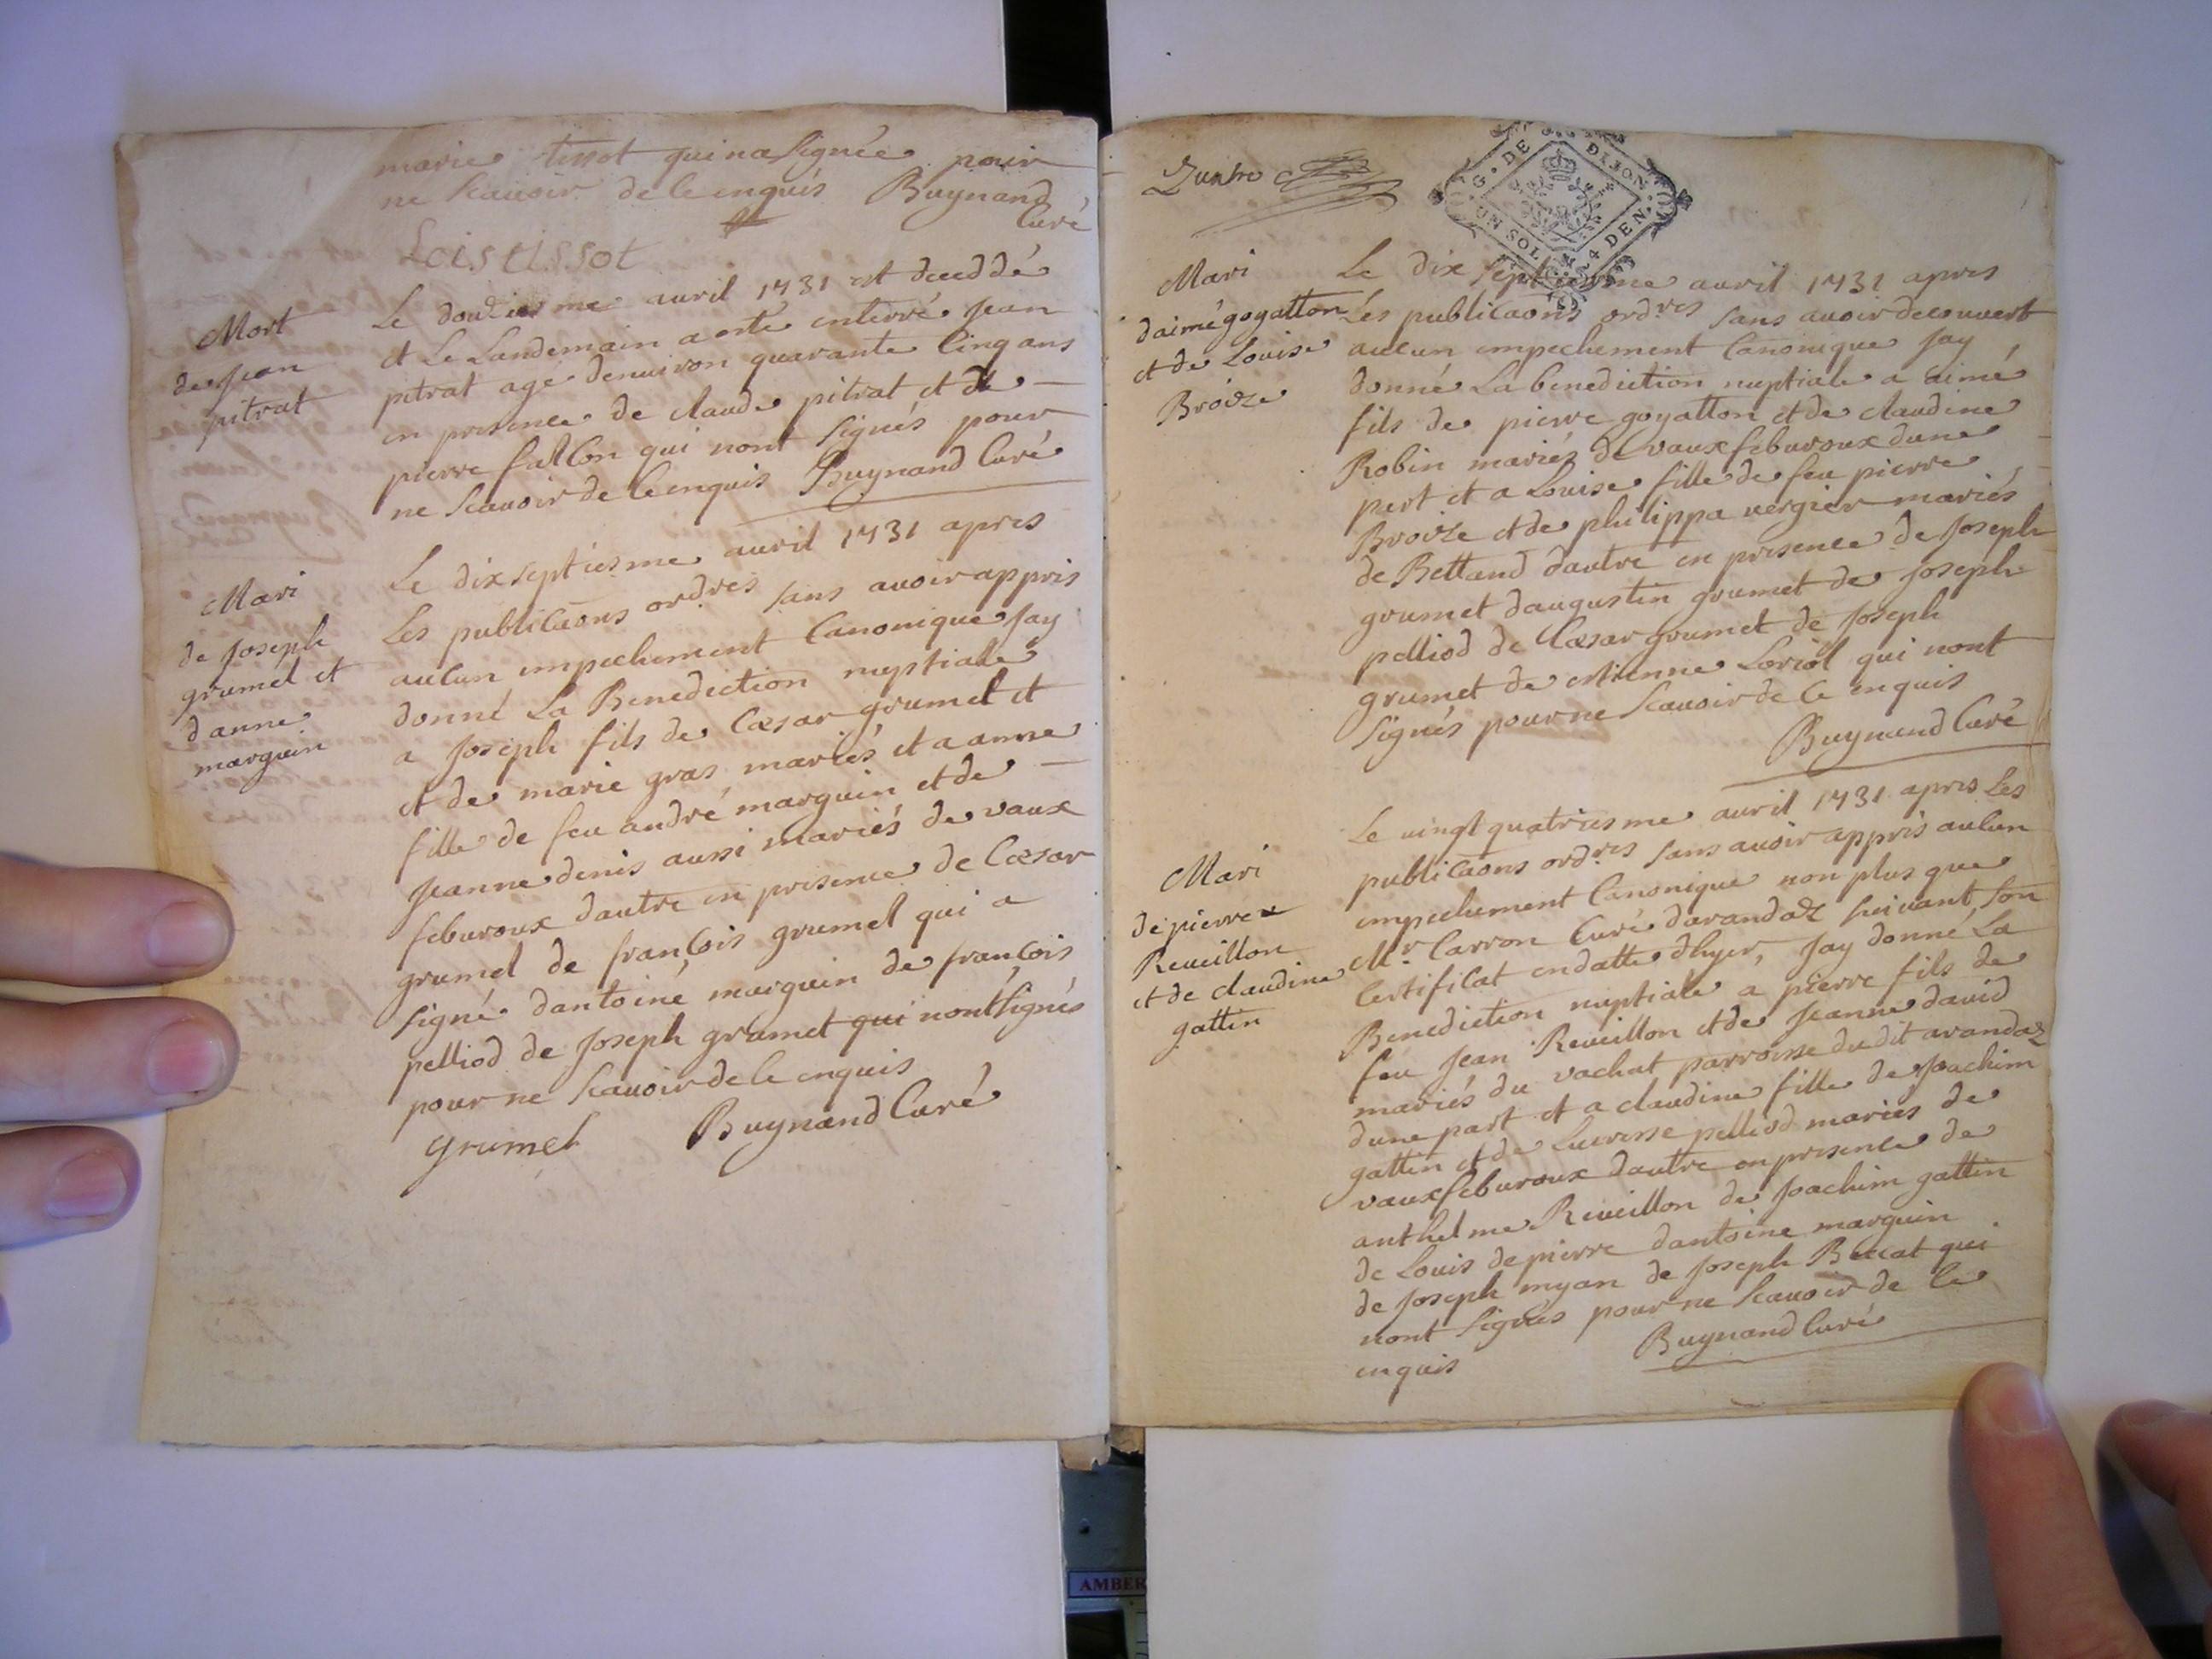 marie tissot qui na signée pour
ne scauoir de ce enquis Buynand
Curé
Lois tissot
Mort
de Jean
pitrat
Le douziesme auril 1731 est deceddé
et Le Landemain a esté enterré Jean
pitrat agé denuiron quarante Cinq ans
en presence de claude pitrat et de
pierre falcon qui nont signés pour
ne scauoir de ce enquis Buynand Curé
Mari
de Joseph
grumel et
danne
marguin
Le dixseptiesme auril 1731 apres
Les publicaons ordres sans auoir appris
aucun impechement Canonique Jay
donné La Benediction nuptiale
a Joseph fils de Cæsar grumel et
et de marie gras mariés et a anne
fille de feu andré marguin et de
Jeanne denis aussi mariés de vaux
feburoux dautre en presence de Cæsar
grumel de francois grumel qui a
signé dantoine marguin de francois
pelliod de Joseph grumet qui nont signés
pour ne scauoir de ce enquis
grumel Buynand Curé
G. DE DIJON
UN SOL 4 DEN.
Mari
daimé goyatton
et de Louise
Broize
Le dix septiesme auril 1731 apres
Les publicaons ordres sans auoir decouuert
aucun impechement Canonique Jay
donné La benediction nuptiale a aimé
fils de pierre goyatton et de claudine
Robin mariés de vaux feburoux dune
part et a Louise fille de feu pierre
Broize et de philippa vergier mariés
de Bettand dautre en presence de Joseph
grumet daugustin grumet de Joseph
pelliod de Cæsar grumet de Joseph
grumet de estienne Loriol qui nont
signés pour ne scauoir de ce enquis
Buynand Curé
Mari
de pierre
Reueillon
et de claudine
gattin
Le uingt quatriesme auril 1731 apres Les
publicaons ordres sans auoir appris aucun
impechement Canonique non plus que
Mr Carron Curé darandaz suiuant son
Certificat en datte dhyer, Jay donné La
Benediction nuptiale a pierre fils de
feu Jean Reueillon et de Jeanne dauid
mariés du vachat parroisse dudit arandaz
dune part et a claudine fille de Joachim
gattin et de Lucresse pelliod mariés de
vaux feburoux dautre en presence de
anthelme Reueillon de Joachim gattin
de Louis de pierre dantoine marguin
de Joseph myan de Joseph Beccat qui
nont signés pour ne scauoir de ce
enquis Buynand Curé
AMBER